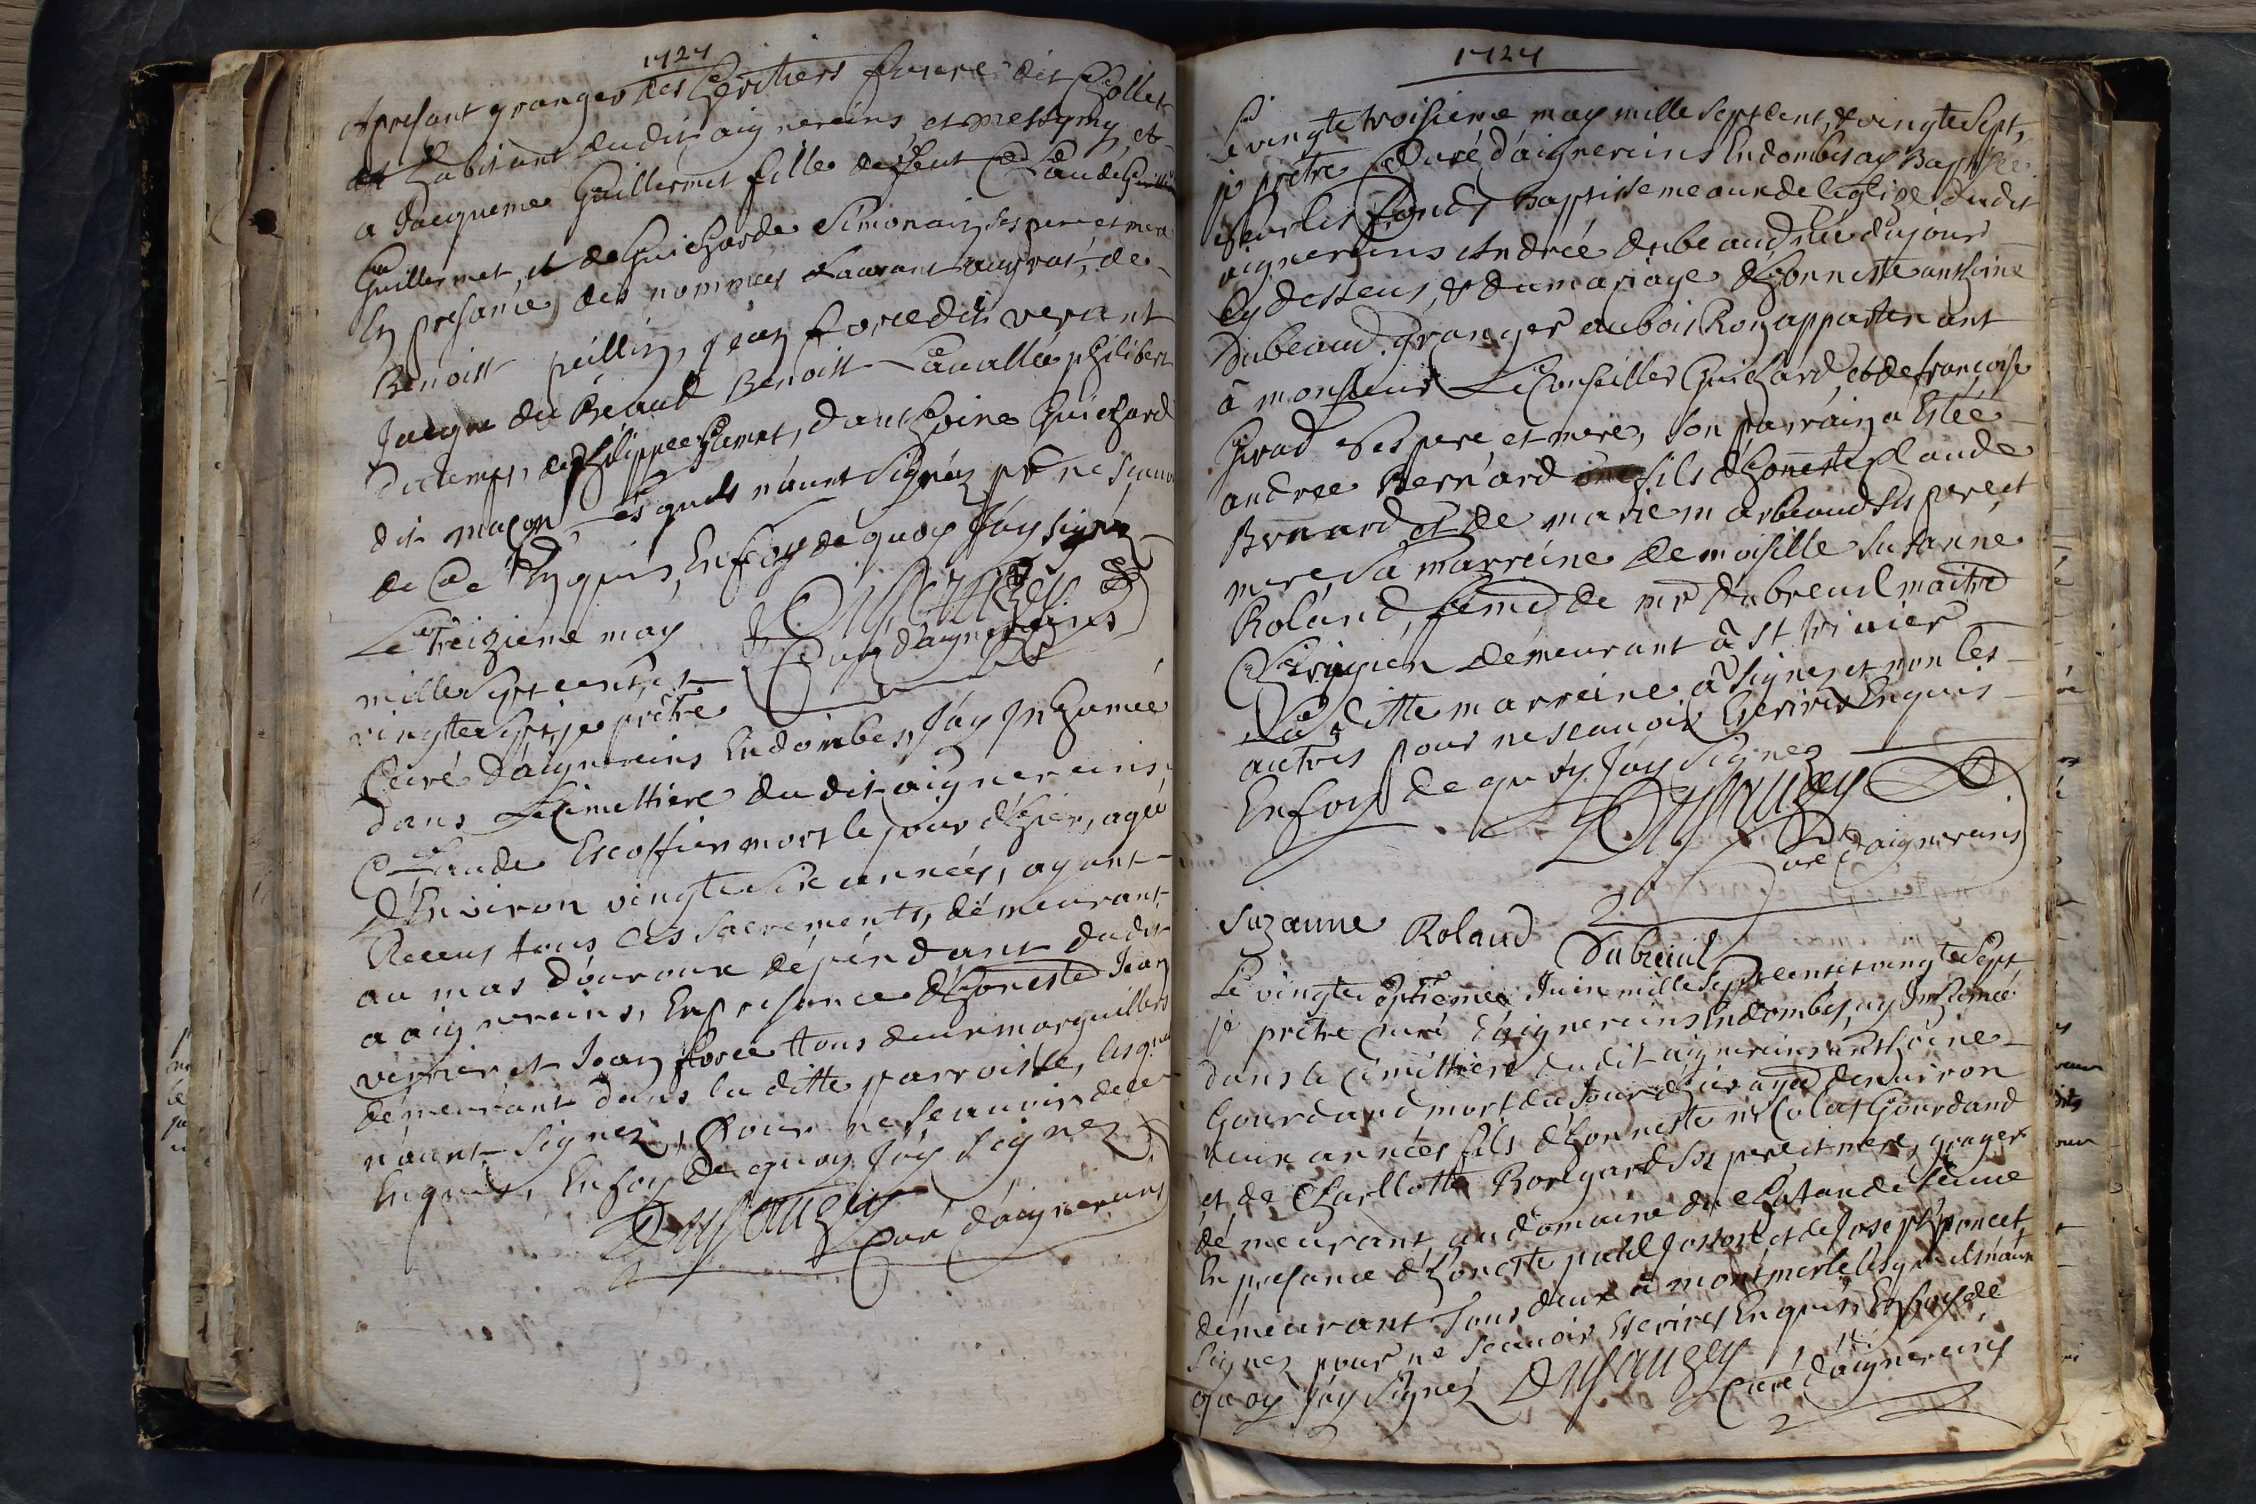 1727
apresant granger des heritiers faure dit Chollet
et habitant dudit aignereins et messymy, et
a Jacquema Guillermet fille de feut Claude
Guillermet, et de Guicharde Simonain, ses pere et mere
En presance, des nommées Laurant augrat, de
Benoist peillin, jean foree dit verant
Jacque du Beaud Benoist Lavallée philibert
de philippe, danthoine Guichard
dit maçon, lesquels n'aunt signéz pr ne scauoir
de ce Enquis, En foy de quoy J'ay signéz
Dusauzey
Curé d'aignereins
Le Treizieme may
mille sept cent, et
vingte sept, je prêtre
Curé d'aignereins En dombes, J'ay Inhumée
dans Le Cimettiere du dit aignereins,
Claude Escoffier mort le jour d'hier, agée
D'Environ vingte sixe années, ayant
Receus tous les sacrements, démeurant
au mas d'ouroux dépéndant dudit
a aignereins, En presance d'honeste Jean
verrier et Jean foree tous deux marguilliers
démeurant dans la ditte parroisse, lesquels
n'aunt signez, pour ne scauoir de ce
Enquis, En foy de quoy J'ay signez
Dusauzey
Curé d'aignereins
1727
Le vingte troisieme may mille sept cent, & vingte sept,
je prêtre Curé d'aignereins En dombes ay Baptisée
sur les fonds Baptissemeaux de l'eglize dudit
aignereins Andrée dubeaud née du jour
Cy desseus, & du mariage d'honneste anthoine
Dubeaud granger au bois Ron appartenant
à monsieur Le Conseiller Guichard, et de françoise
Grad ses pere et mere, son parrain a Estée
andree Bernard fils d'honeste Claude
Bernard et de marie marbeaud ses pere et
mere, sa marreine demoiselle Suzanne
Roland, feme de mr Dubreuil maitre
Chirugien démeurant à St trivier
La ditte marreine à signez et non les
autres pour ne scauoir Escrire Enquis
En foy de quoy J'ay signez
Dusauzey
Curé d'aignereins
Suzanne Roland
Dubreuil
Le vingte septiemes Juin mille sept cent et vingte sept
je prêtre Curé d'aignereins En dombes, ay Inhumée
dans le Cimittiere dudit aignereins anthoine
Gourdand mort du Jour d'hier agée d'enuiron
deux années fils d'honneste nicolas Gourdand
et de Charllotte Boregard ses pere et mere, grager
démeurant au domaine de
En presance d'honeste paul Jossort et de Joseph poncet
démeurant tous deux à montmerle lesquels n'aunt
signez pour ne scauoir Escrires Enquis En foy de
quoy J'ay signéz Dusauzey
Curé d'aignereins